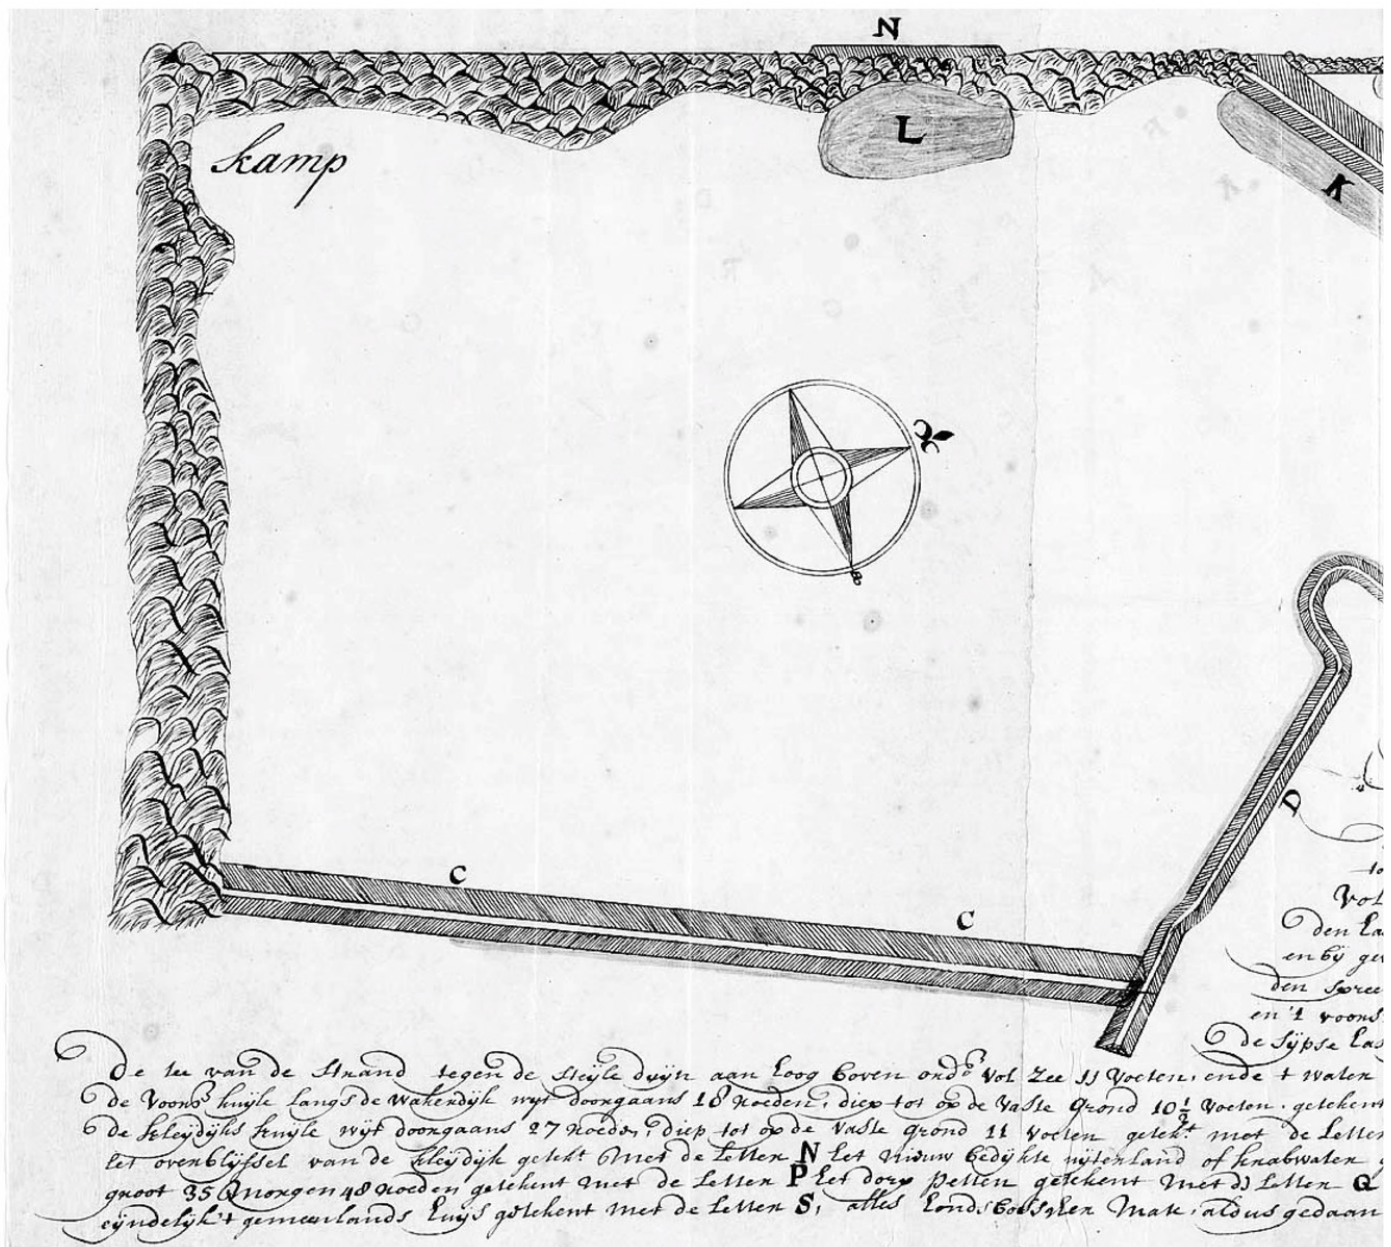 N
L
K
kamp
D
C
C
Vol
den
en bij
den
en 't voors
de Sijpse
De tee van de Strand tegen de steijle duijn aan hoog boven ord. vol Zee 11 voeten, ende t water
de voors. kuijle langs de wakerdijk wijt doorgaans 18 roeden, diep tot op de vaste grond 10½ voeten. getekent
de kleijdijks kuijle wijt doorgaans 27 roeds, diep tot op de vaste grond 11 voeten getekt. met de Letter
het overblijfsel van de kleijdijk gekt met de Letter N het nieuw bedijkte uijterland of knabwater
groot 35 morgen 48 roeden getekent met de Letter P het dorp Petten getekent met d Letter Q
eijndelijk 't gemeenlands huijs getekent met de Letter S, alles Mate, aldus gedaan